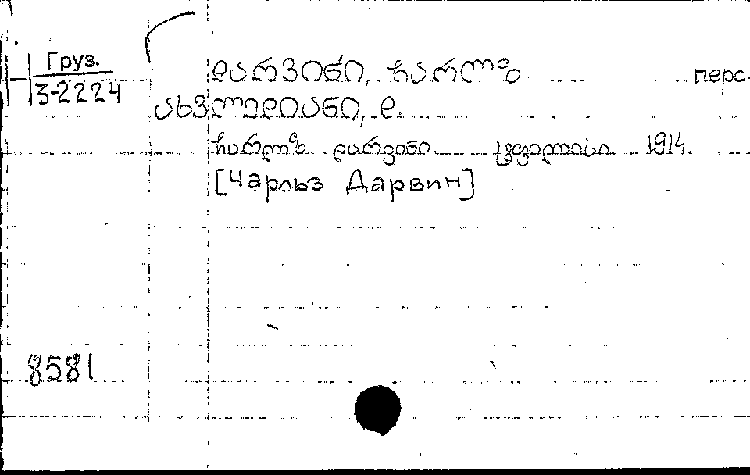 Груз.
3-2224
დარვინი, ჩარლზ
перс.
ახვლედიანი, დ.
ჩარლზ დარვინი. ტფილისი 1914.
[Чарльз Дарвин]
8581